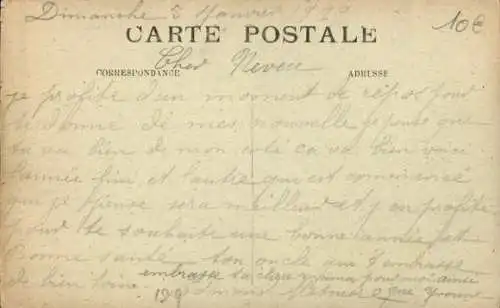 Dimanche 5 Janvier 19
10€
CARTE POSTALE
Cher Neveu
CORRESPONDANCE
ADRESSE
je profite d'un moment de repos pour
te donné de mes nouvelle je pense que
sa va bien de mon coté ca va bien voici
l'année fini et l'autre qui est commencé
que je pense sera meilleur et j'en profite
pour te souhaité une bonne année et
Bonne santé ton oncle qui t'embrasse
embrasse pour moi ainsi
de bien loin